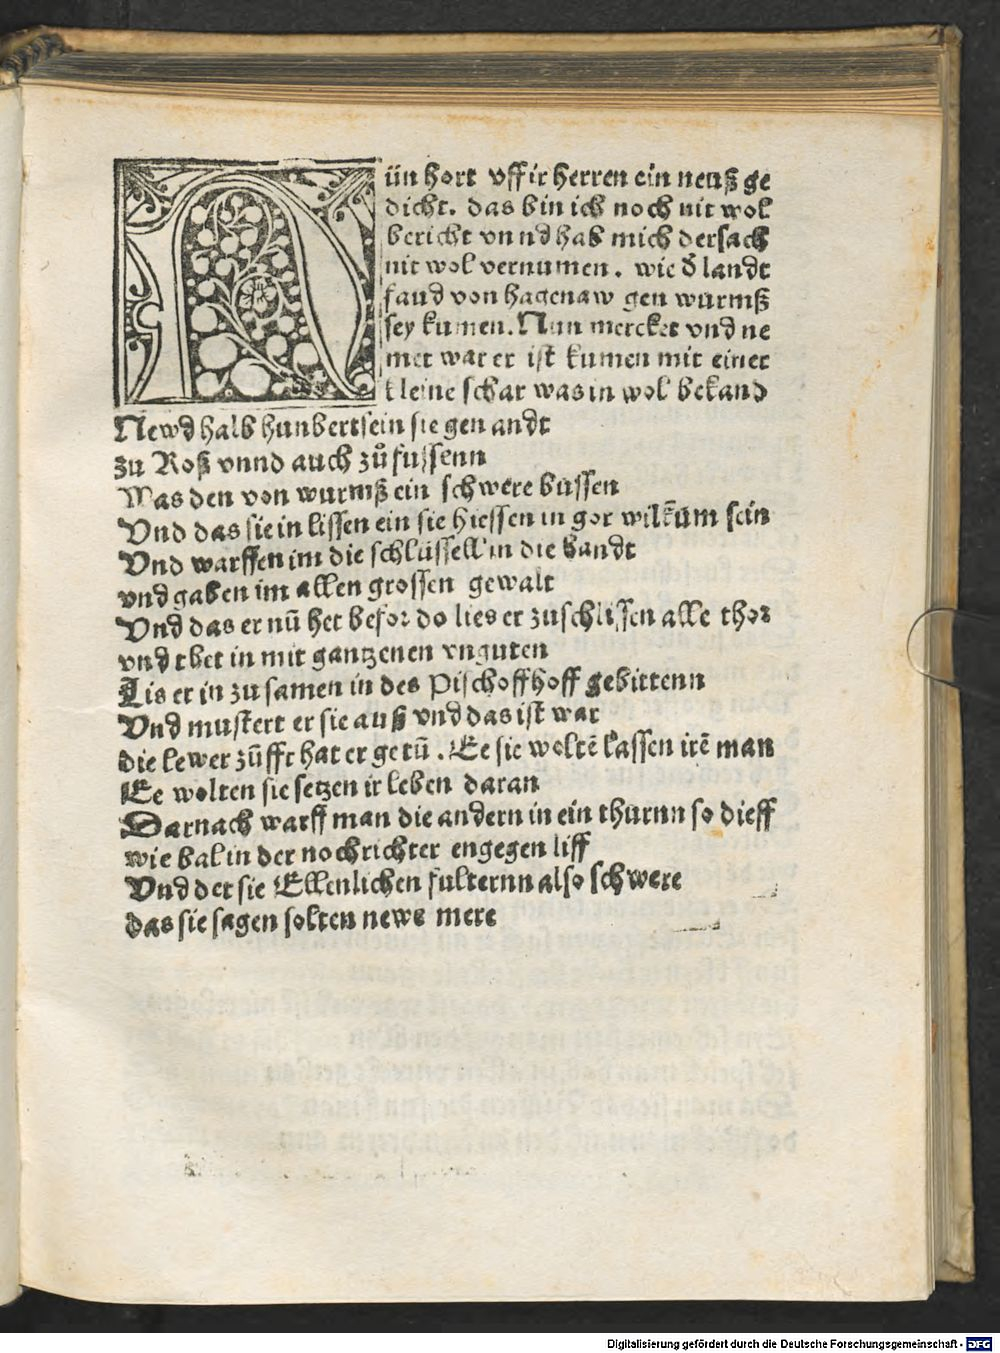 Nün hort vff ir herren ein neuß ge
dicht. das bin ich noch nit wol
bericht vnnd hab mich dersach
nit wol vernumen. wie d̕ landt
faud von hagenaw gen wurmß
sey kumen. Nun mercket vnd ne
met war er ist kumen mit einer
kleine schar was in wol bekand
Newd halb hunbert sein sie gen andt
zu Roß vnnd auch zuͦ fussenn
Was den von wurmß ein schwere bussen
Vnd das sie in lissen ein sie hiessen in gor wilkum̄ sein
Vnd warffen im die schlüssell in die handt
vnd gaben im allen grossen gewalt
Vnd das er nū het befor do lies er zuschlissen alle thor
vnd thet in mit gantzenen vnguten
Lis er in zu samen in des Pischoffhoff gebittenn
Vnd mustert er sie auß vnd das ist war
die lewer zūfft hat er getū. Ee sie woltē lassen irē man
Ee wolten sie setzen ir leben daran
Darnach warff man die andern in ein thurnn so dieff
wie bal in der nochrichter engegen liff
Vnd det sie Ellenlichen fulternn also schwere
das sie sagen solten newe mere
Digitalisierung gefördert durch die Deutsche Forschungsgemeinschaft - DFG